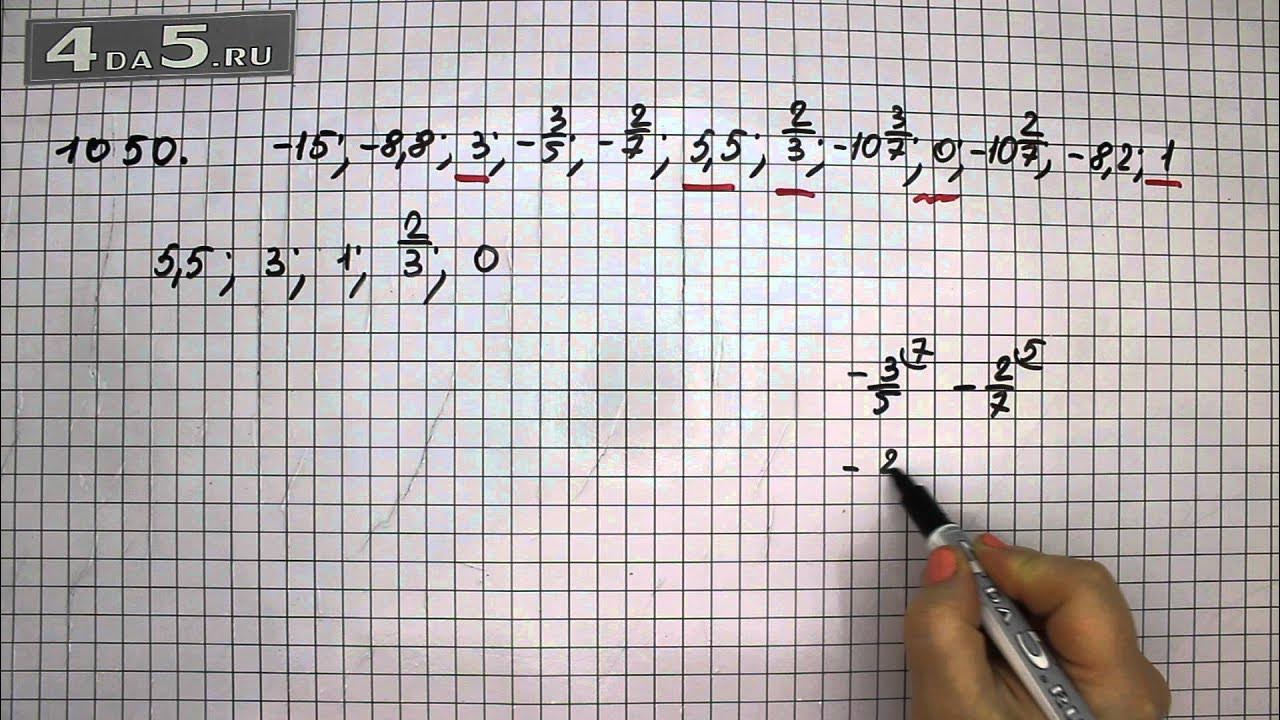 4ДА5.RU
1050. -15; -8,8; 3; -3/5; -2/7; 5,5; 2/3; -10 3/7; 0; -10 2/7; -8,2; 1
5,5; 3; 1; 2/3; 0
-3/5 (7 -2/7 (5
- 2